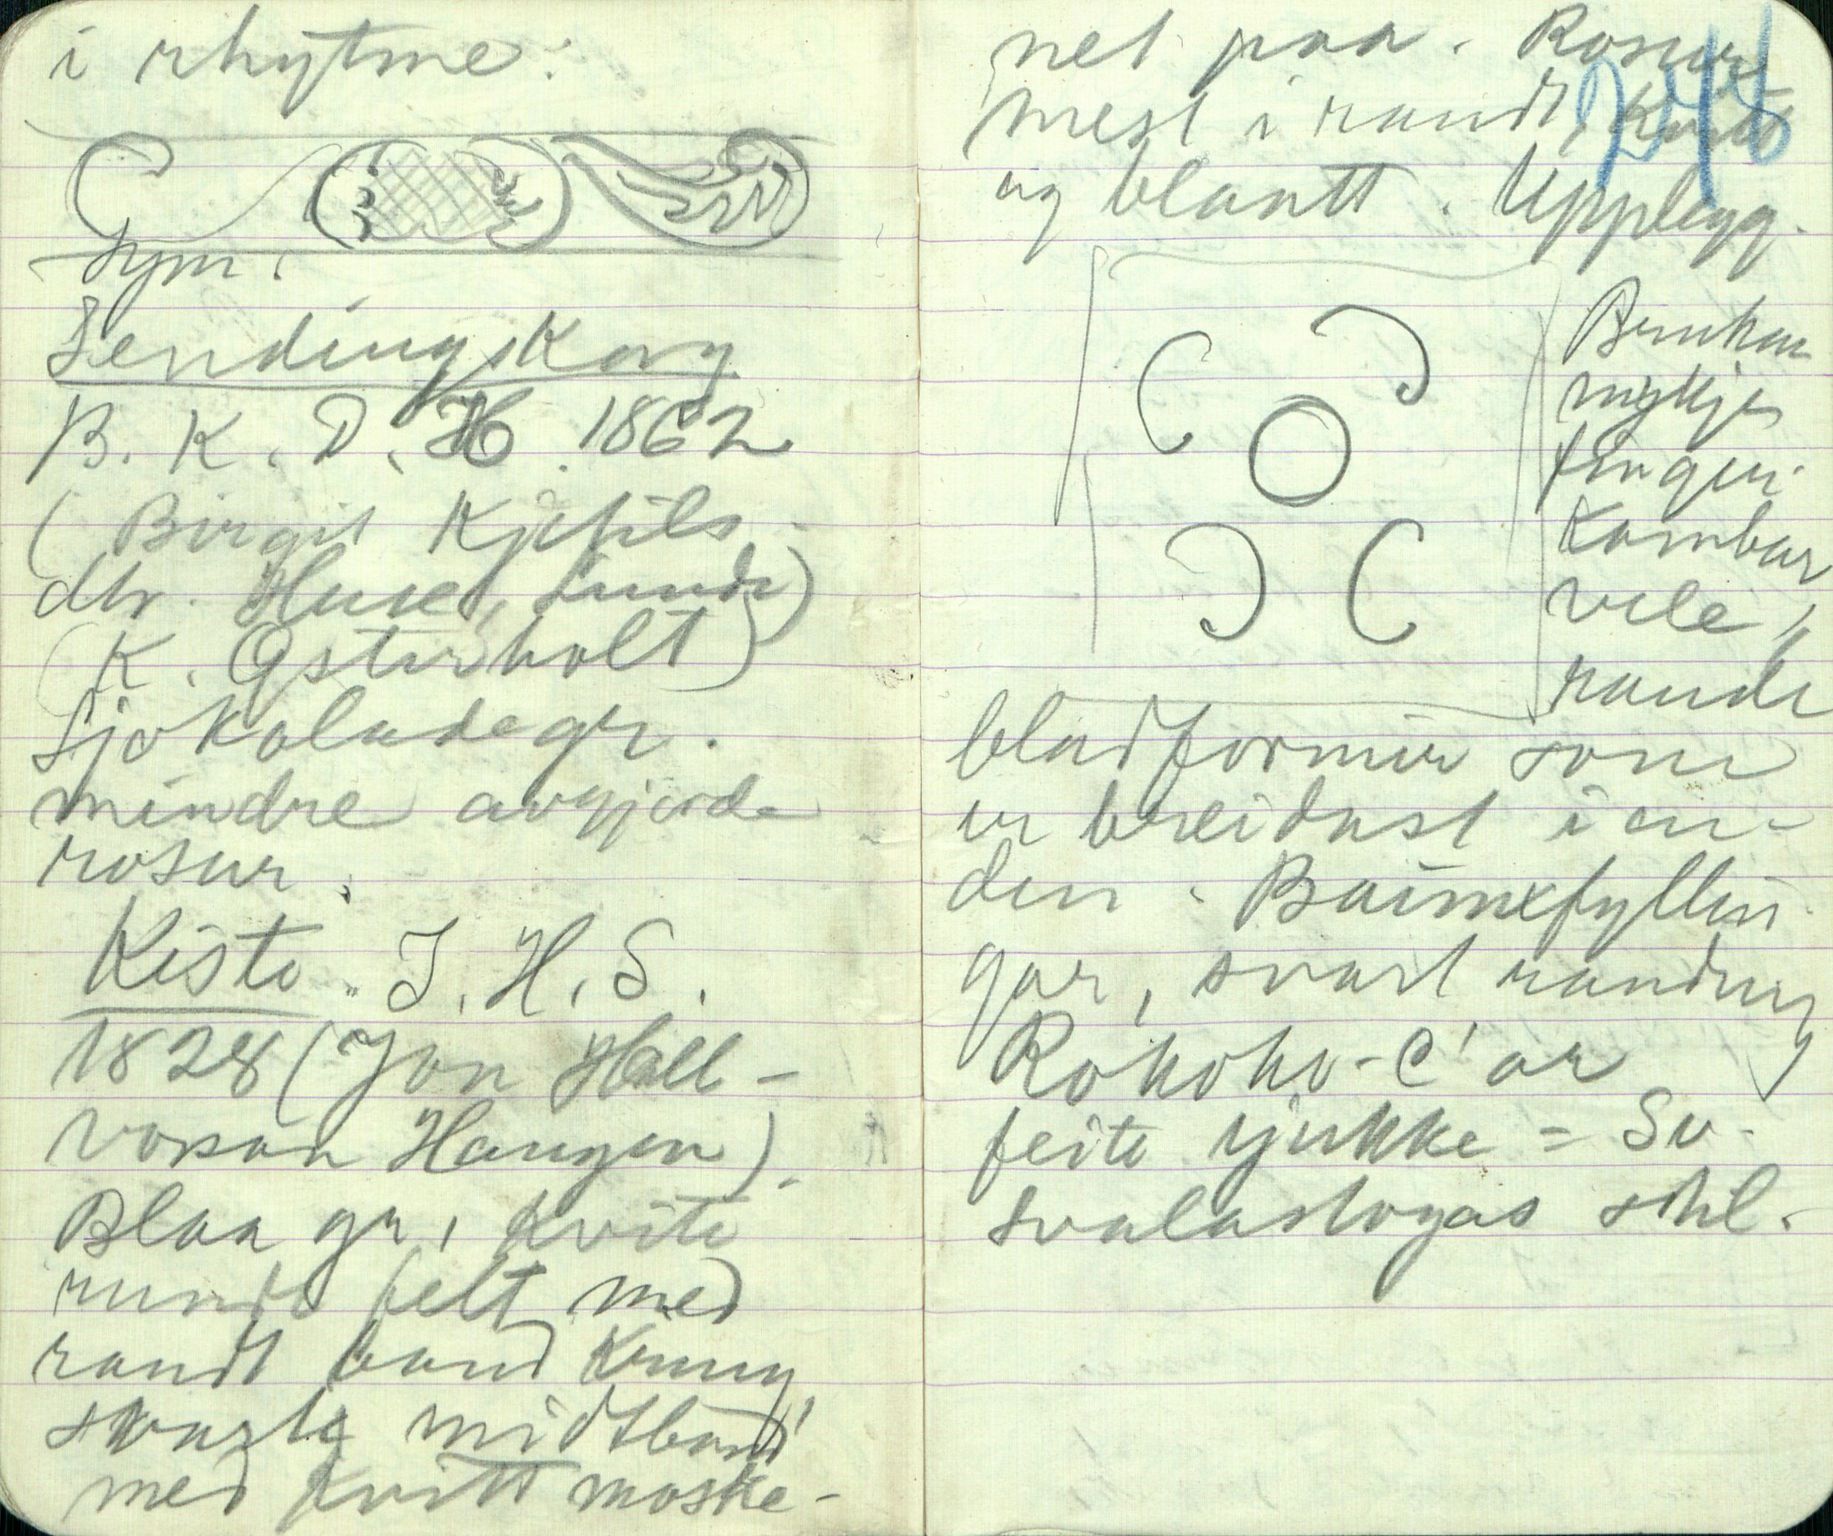 i rhytme:
Sym.
Sendingskorg
B. K. D. H. 1862
(Birgit Kjetils-
dtr. Huse, Lunde)
(K. Østerholt)
Sjokoladegr.
mindre avgjorde
rosur.
Kiste. J. H. S.
1828 (Jon Hall-
vorson Haugen).
Blaa gr, kvite
runde felt med
raudt band kring,
svarte midtband
med kvitt maske-
net paa. Rosur
mest i raudt, kvitt
og blaatt. Upplegg.
248
Brunkar
mykje
finger
Kombar
vele,
raude
bladformer som
er breidast i en-
den. Baimefyllin-
gar, svart randing
Rokoko-C'ar
feite tjukke = Sv.
Svalastogas stil.